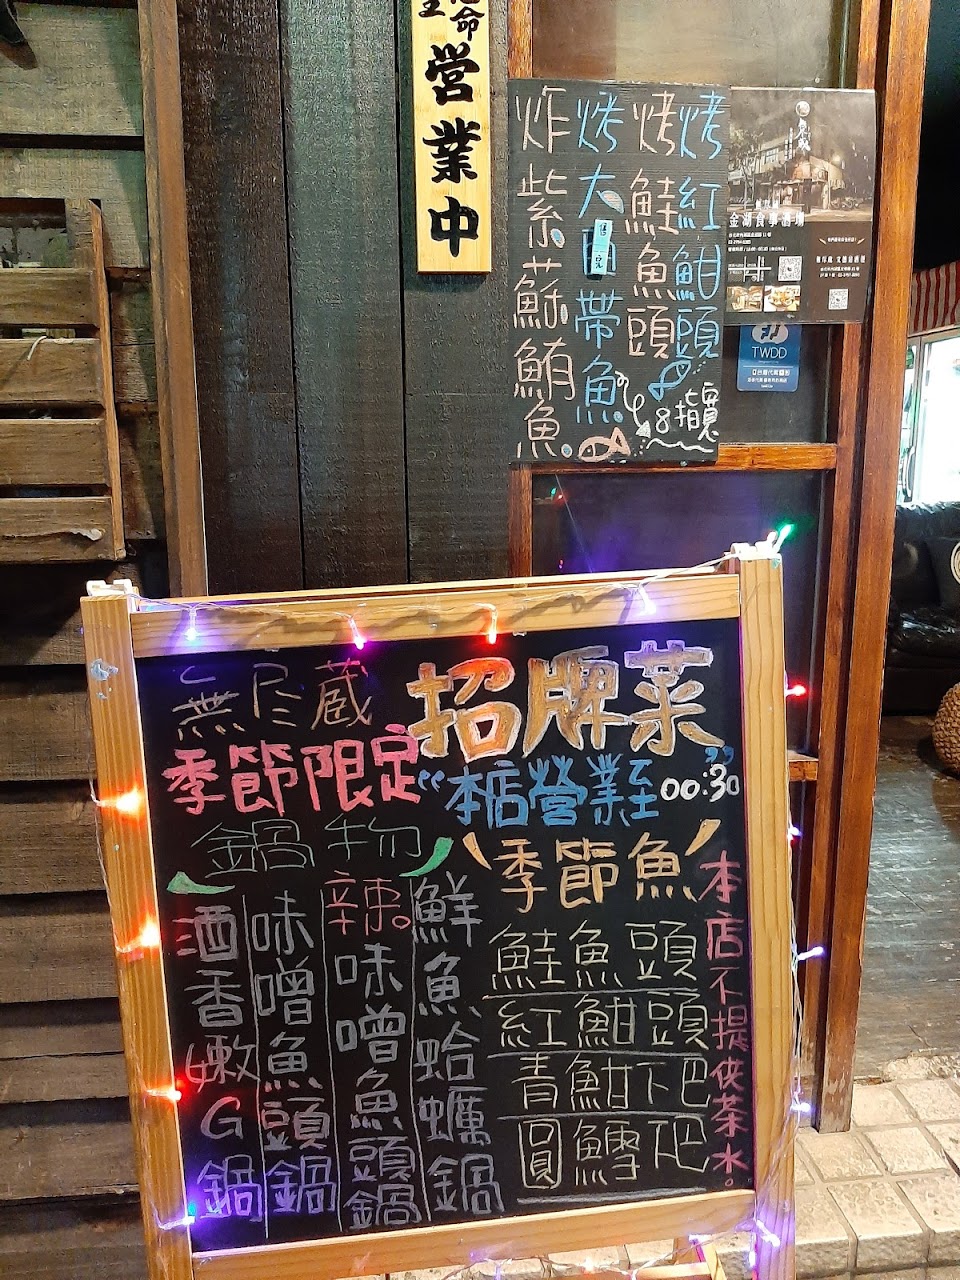 命
営業中
烤紅魽頭
烤鮭魚頭
烤大白帶魚
炸紫蘇鮪魚
售完
金湖食事酒場
TWDD
無尽蔵
招牌菜
季節限定
"本店営業至00:30"
鍋物
季節魚
鮮魚蛤蠣鍋
辣味噌魚頭鍋
味噌魚頭鍋
酒香嫩G鍋
鮭魚頭
紅魽頭
青魽下巴
圓鱈下巴
本店不提供茶水。